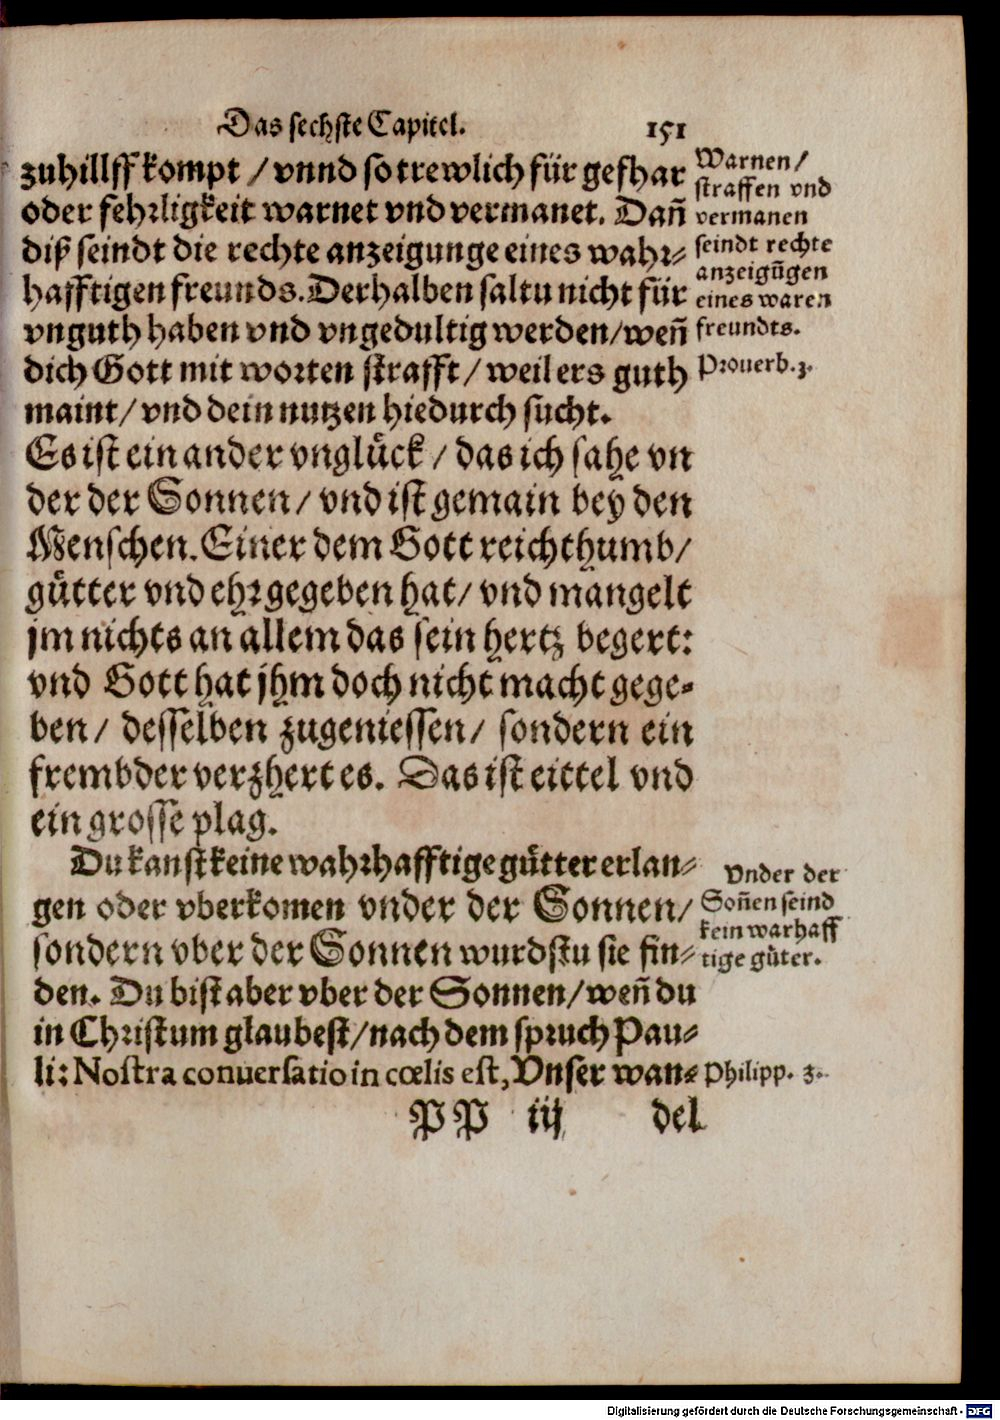 Das sechste Capitel. 151
zuhillff kompt / vnnd so trewlich für gefhar
oder fehrligkeit warnet vnd vermanet. Dañ
diß seindt die rechte anzeigunge eines wahr⸗
hafftigen freunds. Derhalben saltu nicht für
vnguth haben vnd vngedultig werden / weñ
dich Gott mit worten strafft / weil ers guth
maint / vnd dein nutzen hiedurch sucht.
Warnen /
straffen vnd
vermanen
seindt rechte
anzeigũgen
eines waren
freundts.
Prouerb. 3.
Es ist ein ander vnglück / das ich sahe vn
der der Sonnen / vnd ist gemain bey den
Menschen. Einer dem Gott reichthumb /
gütter vnd ehr gegeben hat / vnd mangelt
jm nichts an allem das sein hertz begert:
vnd Gott hat jhm doch nicht macht gege⸗
ben / desselben zugeniessen / sondern ein
frembder verzhert es. Das ist eittel vnd
ein grosse plag.
Du kanst keine wahrhafftige gütter erlan⸗
gen oder vberkomen vnder der Sonnen /
sondern vber der Sonnen wurdstu sie fin⸗
den. Du bist aber vber der Sonnen / weñ du
in Christum glaubest / nach dem spruch Pau⸗
li: Nostra conuersatio in cœlis est, Vnser wan⸗
Vnder der
Soñen seind
kein warhaff
tige güter.
Philipp. 3.
PP iij del
Digitalisierung gefördert durch die Deutsche Forschungsgemeinschaft - DFG